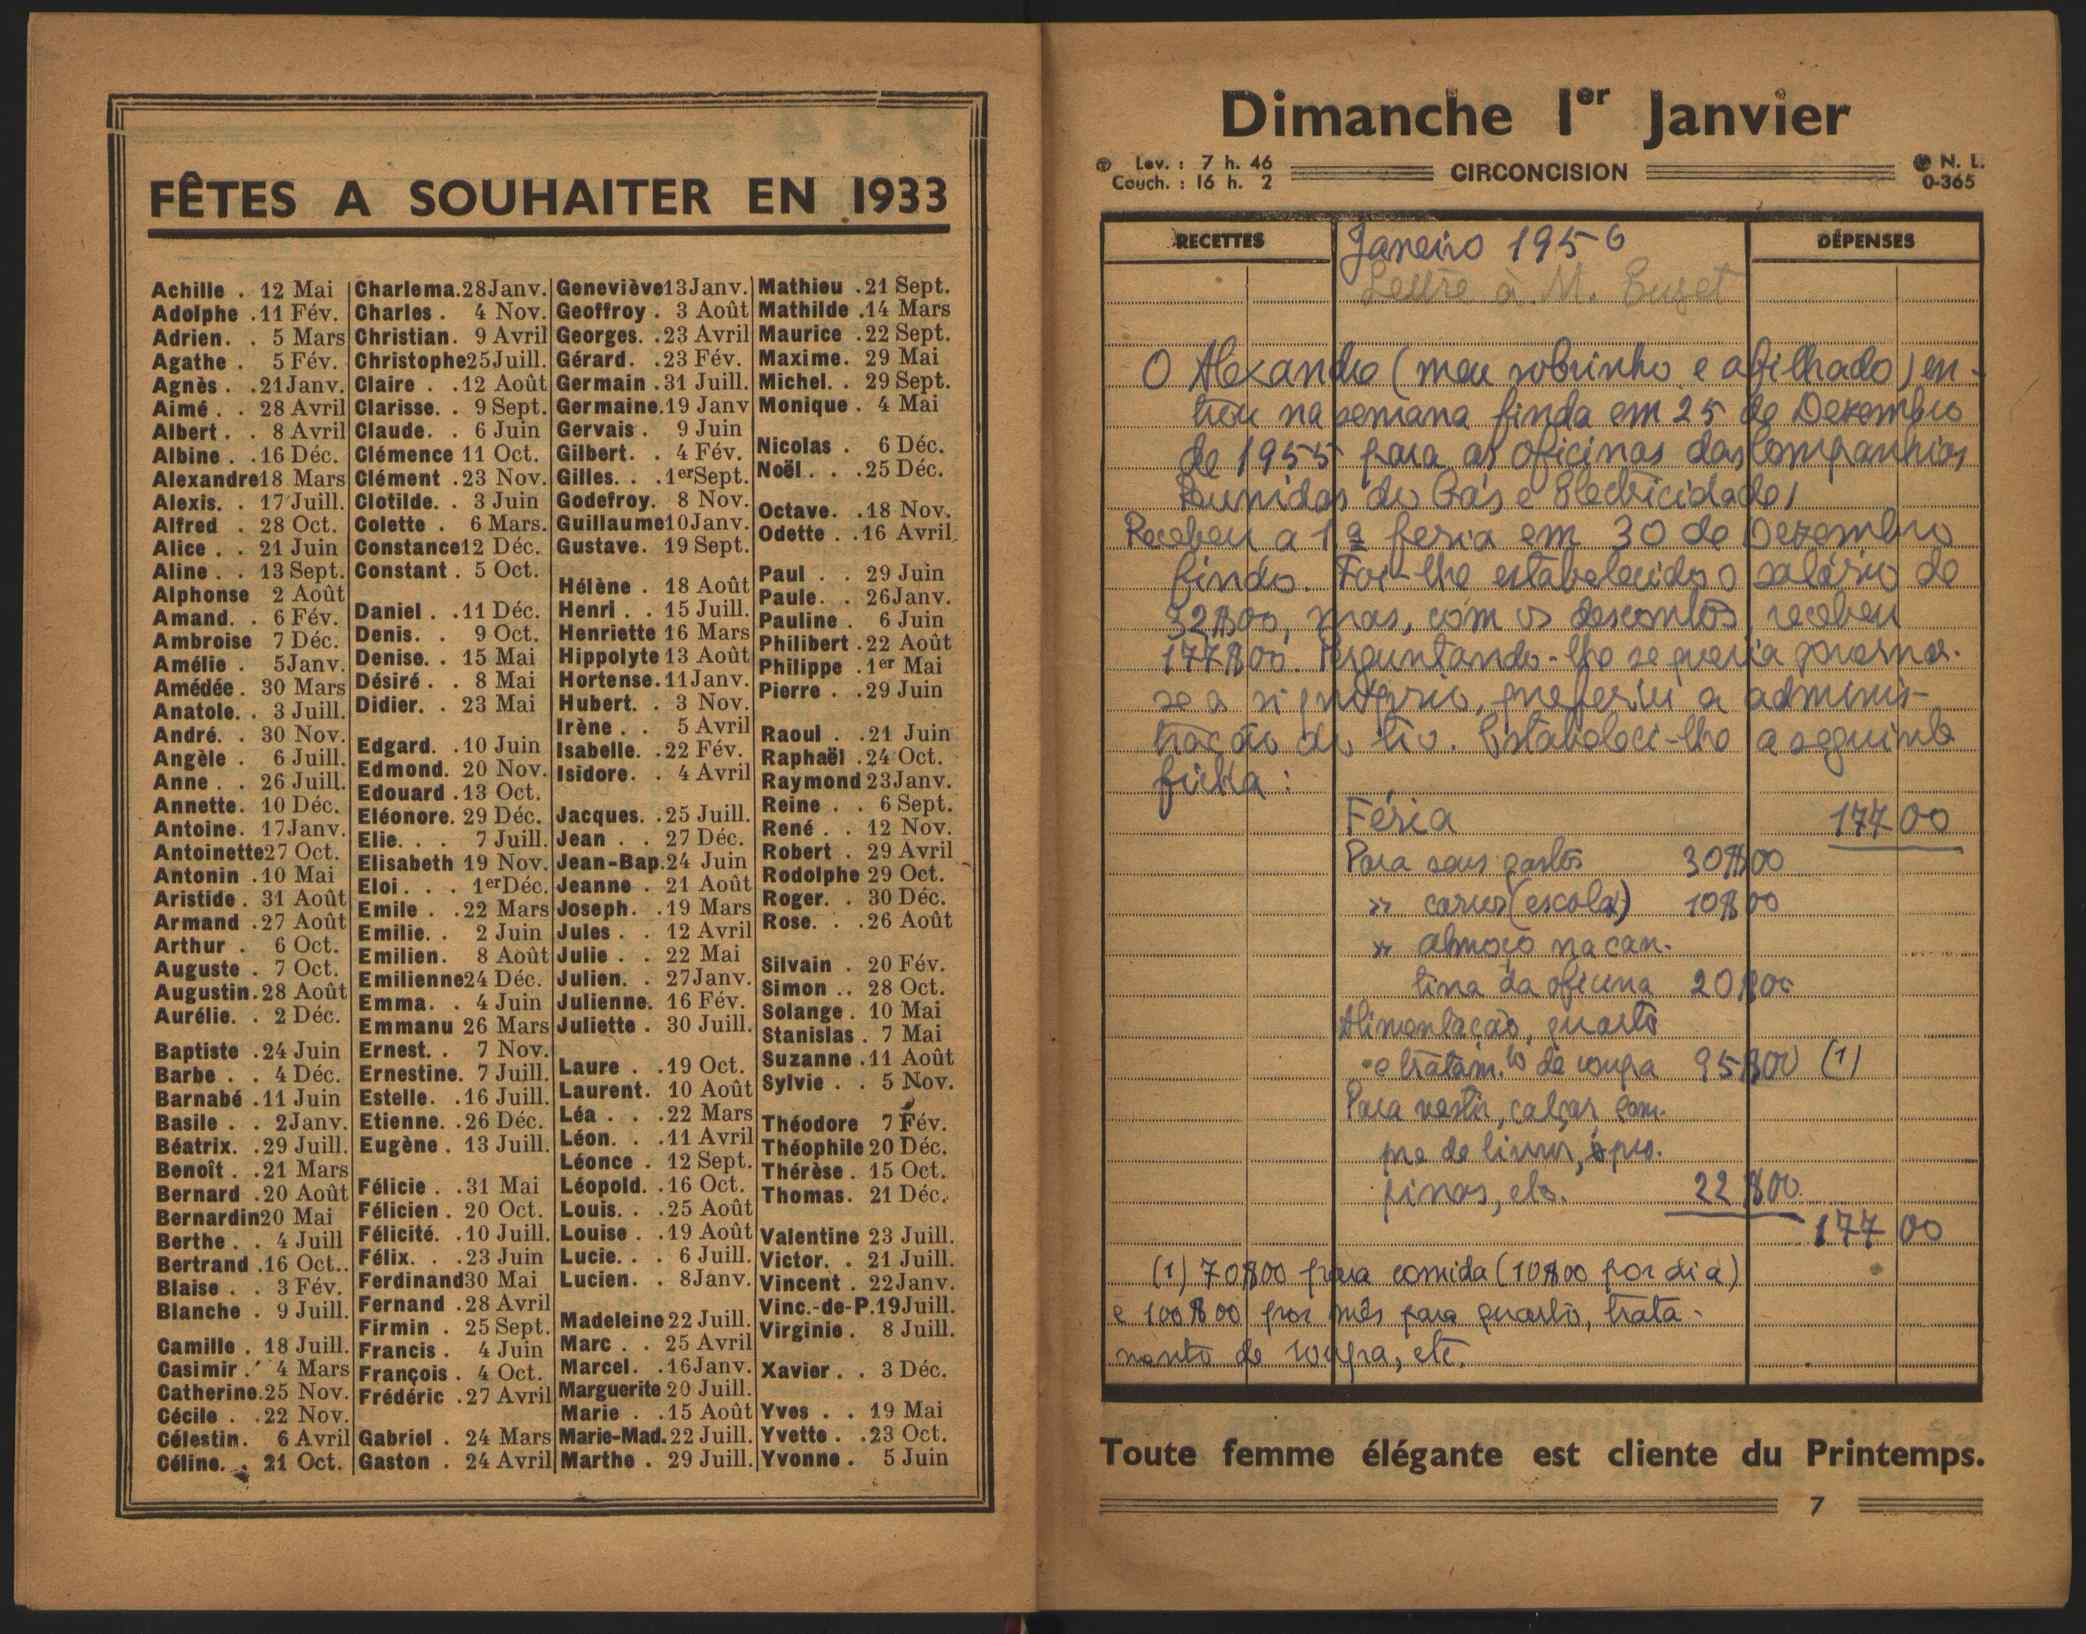 FÊTES A SOUHAITER EN 1933
Achille . 12 Mai
Adolphe . 11 Fév.
Adrien. . 5 Mars
Agathe . 5 Fév.
Agnès . . 21 Janv.
Aimé . . 28 Avril
Albert . . 8 Avril
Albine . . 16 Déc.
Alexandre 18 Mars
Alexis. . 17 Juill.
Alfred . 28 Oct.
Alice . . 21 Juin
Aline . . 13 Sept.
Alphonse 2 Août
Amand. . 6 Fév.
Ambroise 7 Déc.
Amélie . 5 Janv.
Amédée . 30 Mars
Anatole. . 3 Juill.
André. . 30 Nov.
Angèle . 6 Juill.
Anne . . 26 Juill.
Annette. 10 Déc.
Antoine. 17 Janv.
Antoinette 27 Oct.
Antonin . 10 Mai
Aristide . 31 Août
Armand . 27 Août
Arthur . 6 Oct.
Auguste . 7 Oct.
Augustin. 28 Août
Aurélie. . 2 Déc.
Baptiste . 24 Juin
Barbe . . 4 Déc.
Barnabé . 11 Juin
Basile . . 2 Janv.
Béatrix. . 29 Juill.
Benoît . . 21 Mars
Bernard . 20 Août
Bernardin 20 Mai
Berthe . . 4 Juill
Bertrand . 16 Oct..
Blaise . . 3 Fév.
Blanche . 9 Juill.
Camille . 18 Juill.
Casimir . 4 Mars
Catherine. 25 Nov.
Cécile . . 22 Nov.
Célestin. 6 Avril
Céline. . 21 Oct.
Charlema. 28 Janv.
Charles . 4 Nov.
Christian. 9 Avril
Christophe 25 Juill.
Claire . . 12 Août
Clarisse. . 9 Sept.
Claude. . 6 Juin
Clémence 11 Oct.
Clément . 23 Nov.
Clotilde. . 3 Juin
Colette . 6 Mars.
Constance 12 Déc.
Constant . 5 Oct.
Daniel . . 11 Déc.
Denis. . 9 Oct.
Denise. . 15 Mai
Désiré . . 8 Mai
Didier. . 23 Mai
Edgard. . 10 Juin
Edmond. 20 Nov.
Edouard . 13 Oct.
Eléonore. 29 Déc.
Elie. . . 7 Juill.
Elisabeth 19 Nov.
Eloi . . . 1er Déc.
Emile . . 22 Mars
Emilie. . 2 Juin
Emilien. 8 Août
Emilienne 24 Déc.
Emma. . 4 Juin
Emmanu 26 Mars
Ernest. . 7 Nov.
Ernestine. 7 Juill.
Estelle. . 16 Juill.
Etienne. . 26 Déc.
Eugène . 13 Juill.
Félicie . . 31 Mai
Félicien . 20 Oct.
Félicité. . 10 Juill.
Félix. . . 23 Juin
Ferdinand 30 Mai
Fernand . 28 Avril
Firmin . 25 Sept.
Francis . 4 Juin
François . 4 Oct.
Frédéric . 27 Avril
Gabriel . 24 Mars
Gaston . 24 Avril
Geneviève 13 Janv.
Geoffroy . 3 Août
Georges. . 23 Avril
Gérard. . 23 Fév.
Germain . 31 Juill.
Germaine. 19 Janv
Gervais . 9 Juin
Gilbert. . 4 Fév.
Gilles. . . 1er Sept.
Godefroy. 8 Nov.
Guillaume 10 Janv.
Gustave. 19 Sept.
Hélène . 18 Août
Henri . . 15 Juill.
Henriette 16 Mars
Hippolyte 13 Août
Hortense. 11 Janv.
Hubert. . 3 Nov.
Irène . . 5 Avril
Isabelle. . 22 Fév.
Isidore. . 4 Avril
Jacques. . 25 Juill.
Jean . . 27 Déc.
Jean-Bap. 24 Juin
Jeanne . 21 Août
Joseph. . 19 Mars
Jules . . 12 Avril
Julie . . 22 Mai
Julien. . 27 Janv.
Julienne. 16 Fév.
Juliette . 30 Juill.
Laure . . 19 Oct.
Laurent. 10 Août
Léa . . . 22 Mars
Léon. . . 11 Avril
Léonce . 12 Sept.
Léopold. . 16 Oct.
Louis. . . 25 Août
Louise . . 19 Août
Lucie. . . 6 Juill.
Lucien. . 8 Janv.
Madeleine 22 Juill.
Marc . . 25 Avril
Marcel. . 16 Janv.
Marguerite 20 Juill.
Marie . . 15 Août
Marie-Mad. 22 Juill.
Marthe . 29 Juill.
Mathieu . 21 Sept.
Mathilde . 14 Mars
Maurice . 22 Sept.
Maxime. 29 Mai
Michel. . 29 Sept.
Monique . 4 Mai
Nicolas . 6 Déc.
Noël. . . 25 Déc.
Octave. . 18 Nov.
Odette . . 16 Avril
Paul . . 29 Juin
Paule. . 26 Janv.
Pauline . 6 Juin
Philibert . 22 Août
Philippe . 1er Mai
Pierre . . 29 Juin
Raoul . . 21 Juin
Raphaël . 24 Oct.
Raymond 23 Janv.
Reine . . 6 Sept.
René . . 12 Nov.
Robert . 29 Avril
Rodolphe 29 Oct.
Roger. . 30 Déc.
Rose. . . 26 Août
Silvain . 20 Fév.
Simon .. 28 Oct.
Solange . 10 Mai
Stanislas . 7 Mai
Suzanne . 11 Août
Sylvie . . 5 Nov.
Théodore 7 Fév.
Théophile 20 Déc.
Thérèse . 15 Oct.
Thomas. 21 Déc.
Valentine 23 Juill.
Victor. . 21 Juill.
Vincent . 22 Janv.
Vinc.-de-P. 19 Juill.
Virginie . 8 Juill.
Xavier . . 3 Déc.
Yves . . 19 Mai
Yvette . . 23 Oct.
Yvonne . 5 Juin
Dimanche 1er Janvier
Lev. : 7 h. 46
Couch. : 16 h. 2
CIRCONCISION
N. L.
0-365
RECETTES
DÉPENSES
Janeiro 1956
Lettre à M.
O Alexandre (meu sobrinho e afilhado) en-
trou na semana finda em 25 de Dezembro
de 1955 para as oficinas das Companhias
Reunidas do Gás e Electricidade,
Recebeu a 1ª féria em 30 de Dezembro
findo. Foi-lhe estabelecido o salário de
32$00, mas, com os descontos, receberu
177$00. Perguntando-lhe se queria governar-
se a si próprio, preferiu a adminis-
tração do tio. Estabeleci-lhe a seguinte
ficha :
Féria 177 00
Para seus gastos 30$00
» carros (escola) 10$00
» almoço na can-
tina da oficina 20$00
Alimentação, quarto
e tratam.to de roupa 95$00 (1)
Para vestir, calçar, com-
pra de livros, pro-
pinas, etc. 22$00
177 00
(1) 70$00 para comida (10$00 por dia)
e 100$00 por mês para quarto, trata-
mento de roupa, etc.
Toute femme élégante est cliente du Printemps.
7